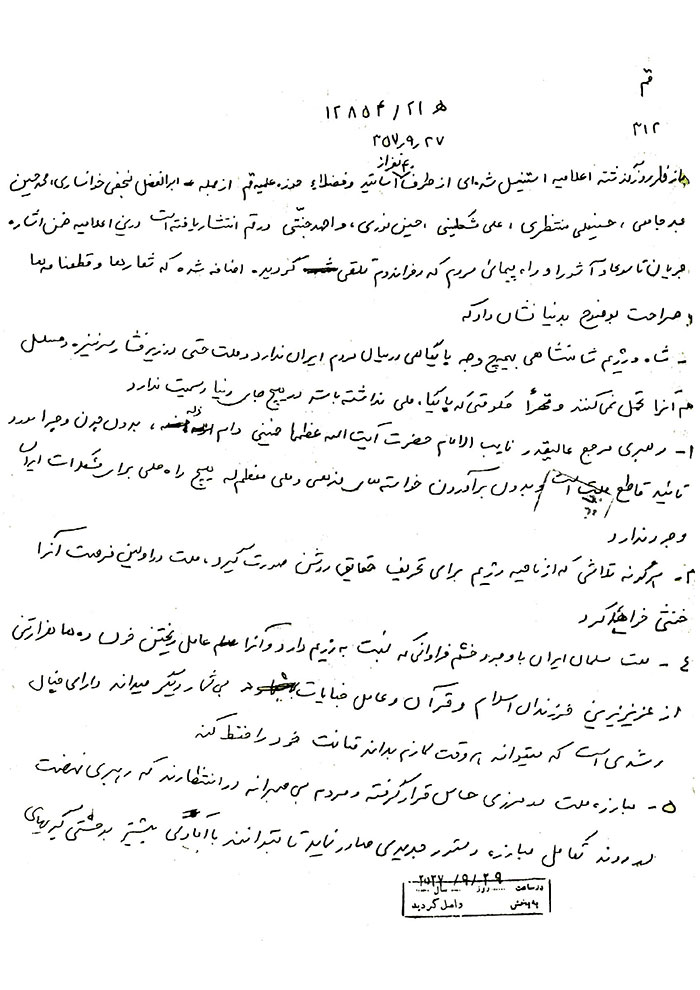 قم
۲۱ / ۱۲۸۵۴ ه
۳۱۲
۳۵۷/۹/۲۷
از ظهر روز گذشته اعلامیه استنسیل شده‌ای از طرف ۴۰ نفر از اساتید و فضلاء حوزه علمیه قم از جمله - ابوالفضل نجفی خوانساری، محمدحسین
عبد جامعی، حسینعلی منتظری، علی مشکینی، حسین نوری، و احمد جنتی در قم انتشار یافته است در این اعلامیه ضمن اشاره
جریان تاسوعا و آشورا و راه پیمائی مردم که رفراندوم تلقی گردیده. اضافه شده که شعارها و قطعنامه‌ها
بصراحت بوضوح بدنیا نشان داد که
- شاه و رژیم شاهنشاهی بهیچ وجه پایگاهی در میان مردم ایران ندارد و ملت حتی در زیر فشار سرنیزه و مسلسل
هم آنرا تحمل نمیکنند و قهراً حکومتی که پایگاه ملی نداشته باشد در هیچ جای دنیا رسمیت ندارد
رهبری مرجع عالیقدر نایب الامام حضرت آیت الله عظما خمینی دام ظله، بدون چون و چرا مورد
تائید قاطع ملت است و بدون برآوردن خواسته‌های مذهبی و ملی معظم له هیچ راه حلی برای مشکلات ایران
وجود ندارد
۳- هرگونه تلاشی که از ناحیه رژیم برای تحریف حقایق روشن صورت گیرد، ملت در اولین فرصت آنرا
خنثی خواهد کرد
۴- ملت مسلمان ایران با وجود خشم فراوانی که نسبت به رژیم دارد و آنرا عامل ریختن خون ده‌ها هزار تن
از عزیزترین فرزندان اسلام و قرآن و عامل جنایات بی شمار دیگر میداند دارای چنان
رشدی است که میتواند هر وقت لازم بداند متانت خود را حفظ کند
۵- مبارزه ملت در مرزی حساس قرار گرفته و مردم بی صبرانه در انتظارند که رهبری نهضت
در روند تکامل مبارزه، دستور جدیدی صادر نماید تا بتوانند با آمادگی بیشتر به خشتی گیریهای
۲۵۳۷/۹/۲۹
در ساعت ... روز ... سال ...
به بخش ... واصل گردید